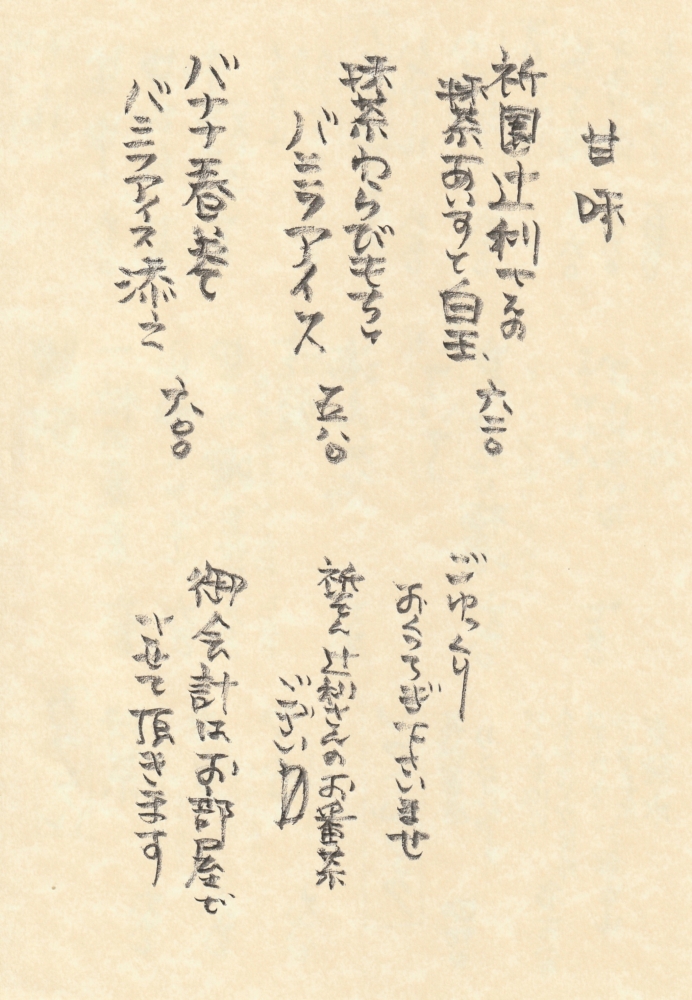 甘味
祇園辻利さんの
抹茶あいすと白玉
六二〇
抹茶わらびもちと
バニラアイス
五八〇
バナナ春巻
バニラアイス添え
六〇〇
ごゆっくり
おくつろぎ下さいませ
祇をん辻利さんのお番茶
ございます
御会計はお部屋で
させて頂きます